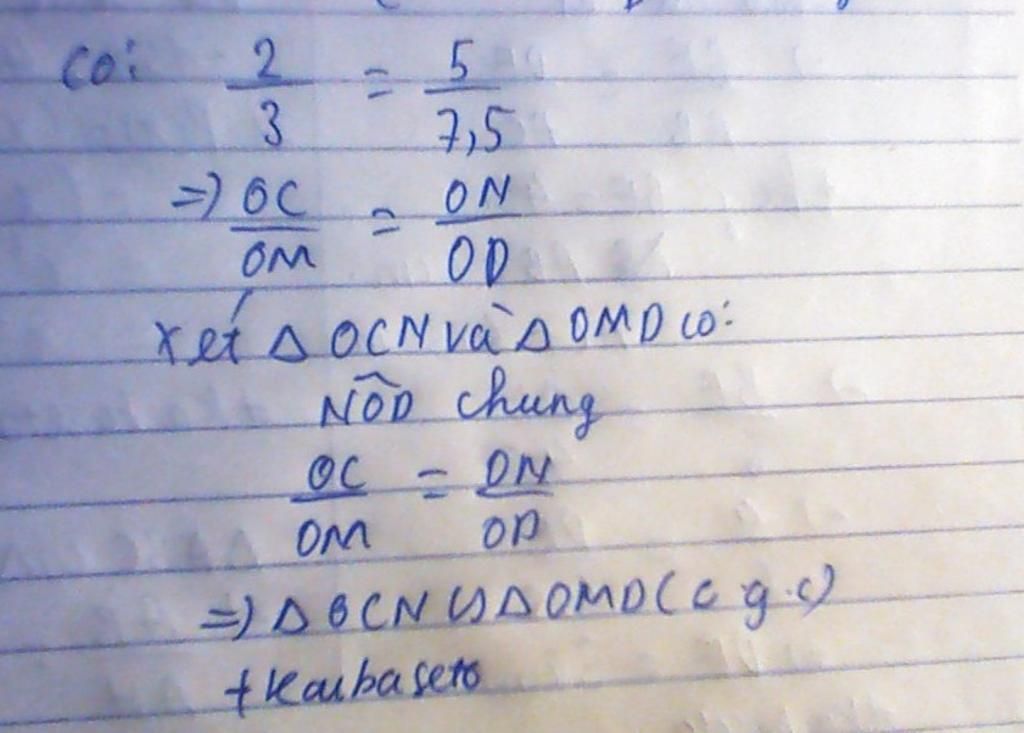 Có: 2/3 = 5/7,5
=> OC/OM = ON/OD
Xét △ OCN và △ OMD có:
NÔD chung
OC/OM = ON/OD
=> △ OCN ∽ △ OMD (c.g.c)
+ Kaibaseto